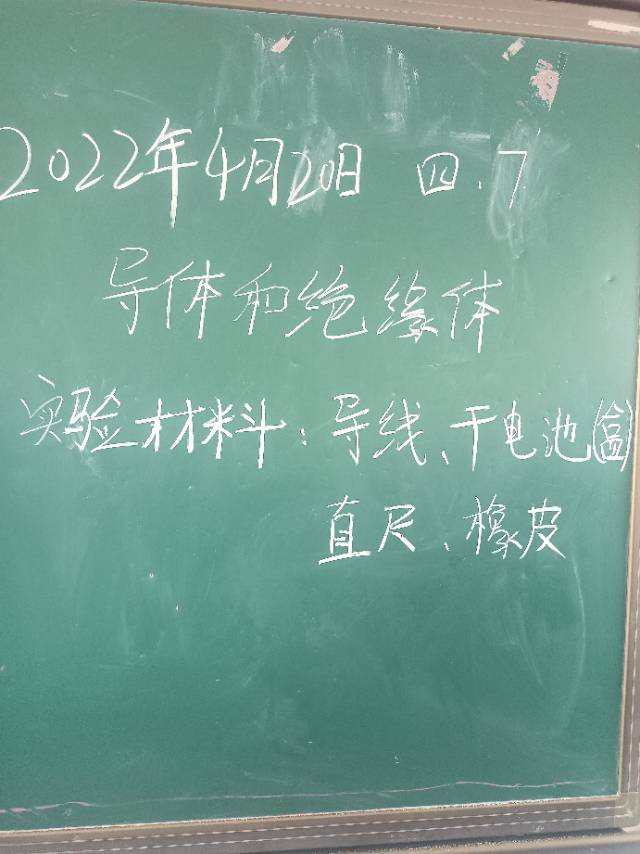 2022年4月20日 四.7
导体和绝缘体
实验材料:导线、干电池(盒)
直尺、橡皮